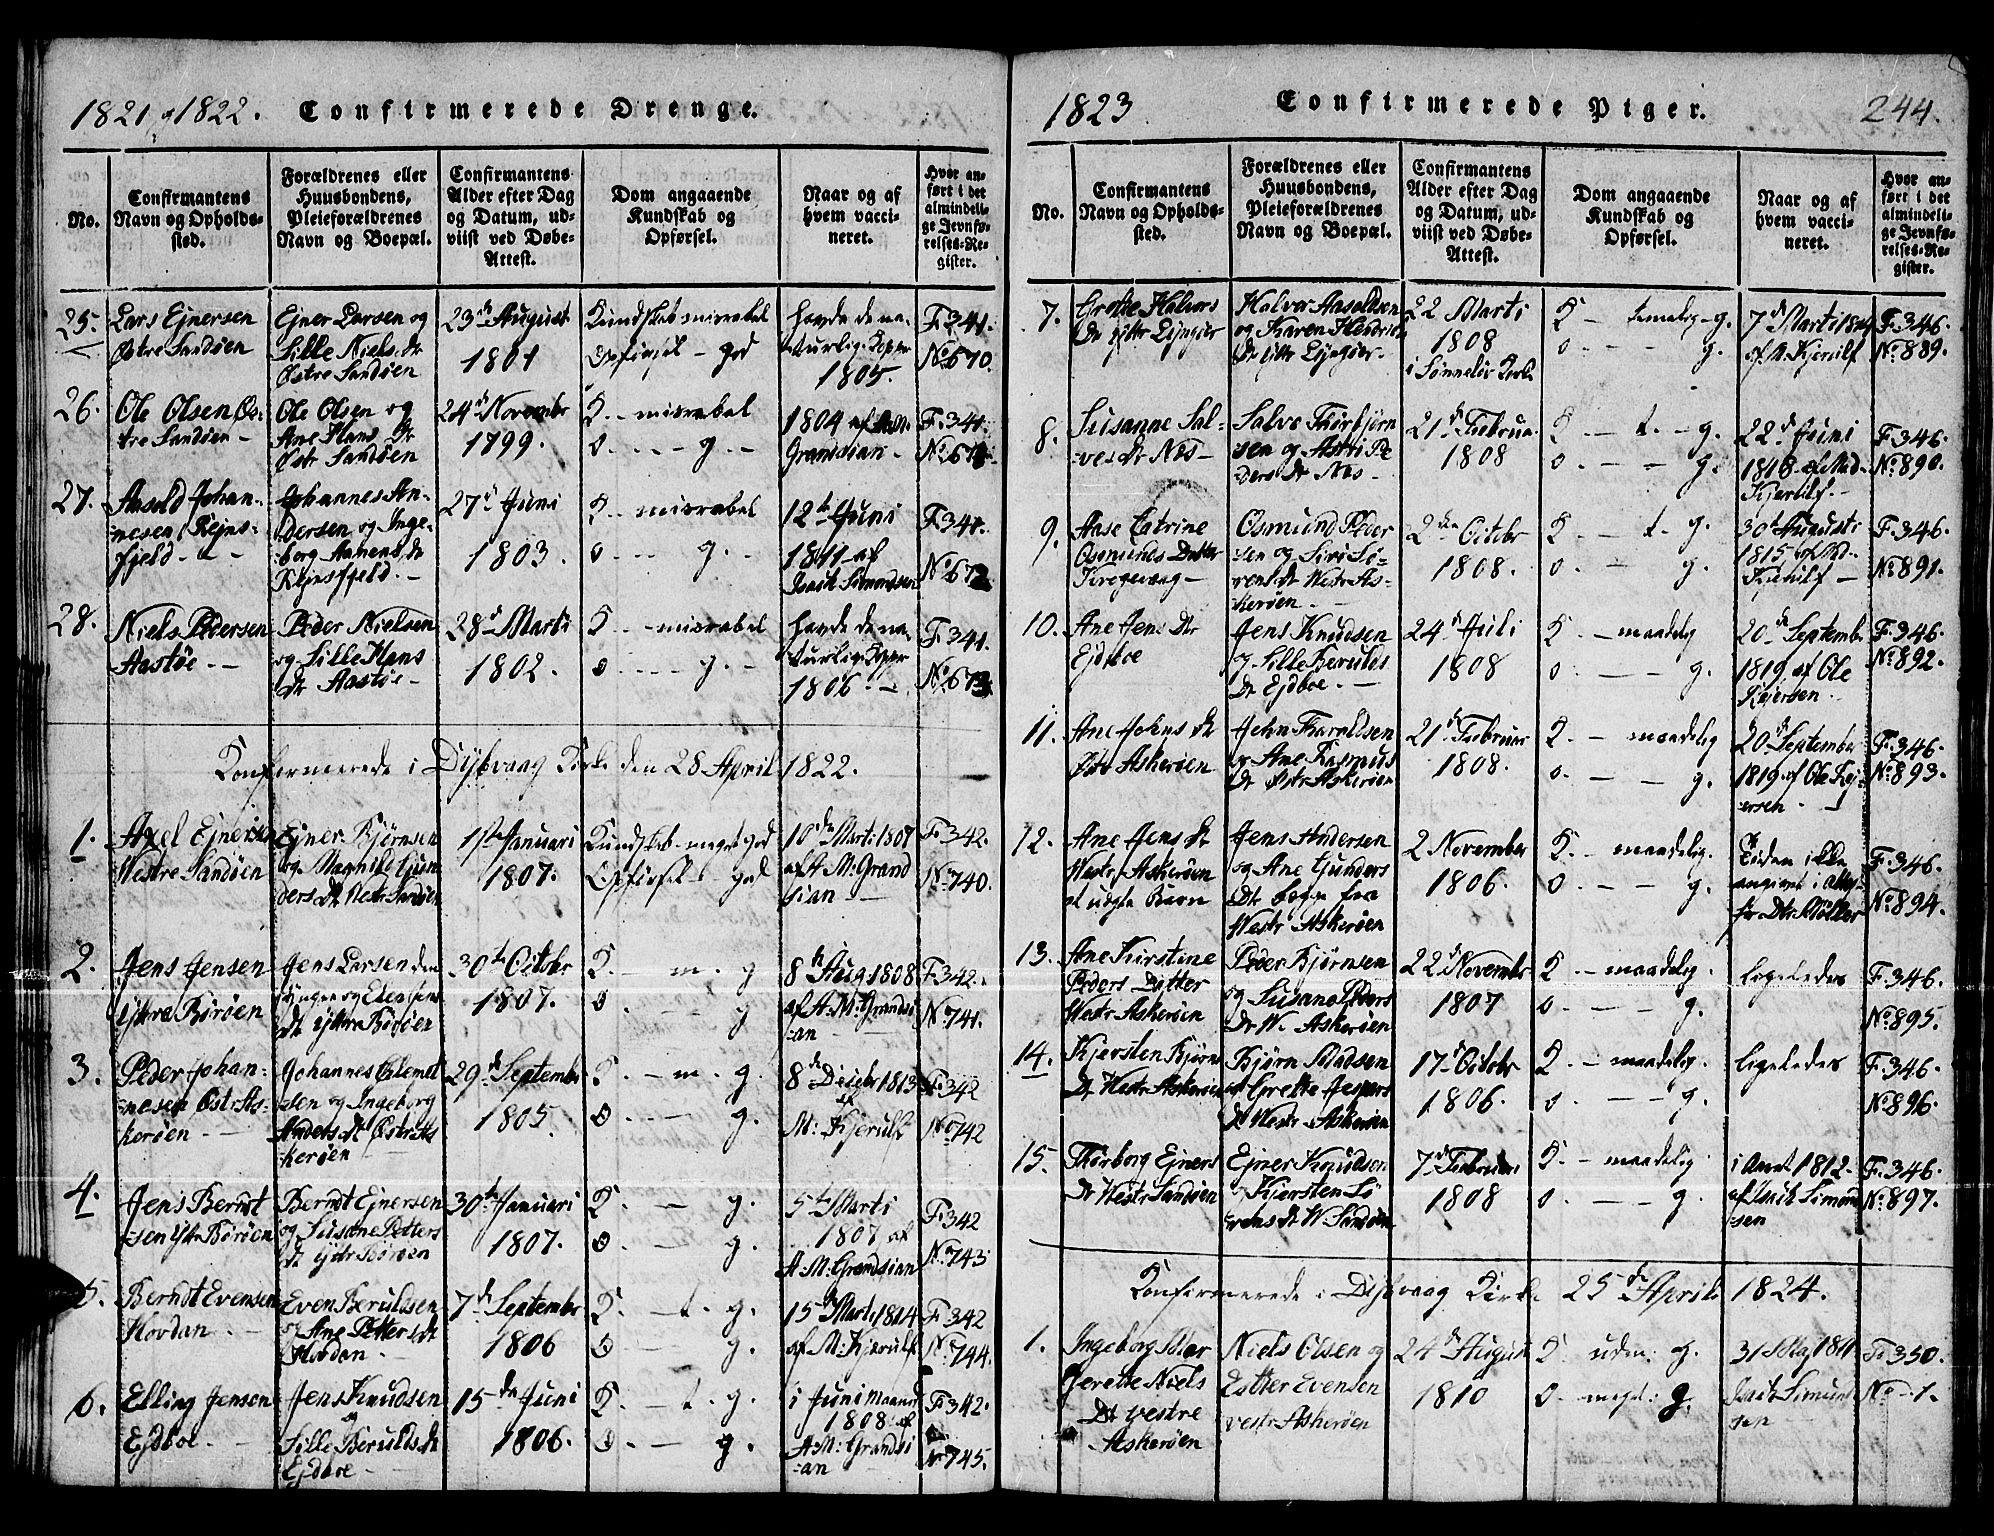 1821 og 1822. Confirmerede Drenge.
No.
Confirmantens
Navn og Opholds-
sted.
Forældrenes eller
Huusbondens,
Pleieforældrenes
Navn og Boepæl.
Confirmantens
Alder efter Dag
og Datum, ud-
viist ved Døbe-
Attest.
Dom angaaende
Kundskab og
Opførsel.
Naar og af
hvem vacci-
neret.
Hvor an-
ført i det
almindeli-
ge Jevnfø-
relses-Re-
gister.
25.
Lars Ejnersen
Østre Sandøen
Ejner Larsen og
Sille Niels Dr
Østre Sandøen
23de August
1801
Kundskab misrabel
Opførsel - god
havde de na-
turlig Kopper
1805.
F. 341.
No 670.
26.
Ole Olsen Øs-
tre Sandøen -
Ole Olsen og
Ane Hans Dr
Østr Sandøen
24de Novembr
1799.
K. - misrabel
o. - - - g. -
1804 af
Grandsian -
F. 341.
27.
Aasold Johan-
nesen Rejns-
fjeld -
Johannes An-
dersen og Inge-
borg Aanens dr
Rejnsfjeld. -
27de Juni
1803.
K. - misrabel
o - - g. -
12te Juni
1811 af
Isach Simondsen
F. 341.
No 672
28.
Niels Pedersen
Aastøe. -
Peder Nielsen
og Sille Hans
Dr Aastøe -
28de Marti
1802.
K. - misrabel
o. - - - g. -
havde de na-
turlig Kopper
1806. -
F. 341.
No 673
Konfirmerede i Dybvaag Kirke den 28 April 1822.
1.
Axel Ejnersen
Westre Sandøen
Ejner Bjørnsen
og Magnild Gun
ders Dr Westr Sandøen
1ste Januari
1807.
Kundskab - meget god
Opførsel - god
10de Marti 1807
af A. M. Grand
sian -
F. 342.
No 740.
2.
Jens Jensen
Ytre Borøen
Jens Larsen den
Dr Ytre Borøen
30te Octobr
1807.
K. - m. g
o. - - g
8de Aug 1808
af A. M. Grandsi
-an -
F. 342.
No 741.
3.
Peder Johan-
nesen Østr As-
kerøen -
Johannes Clemet
sen og Ingeborg
Anders Dr Østr As
kerøen
29de Septembr
1805.
K. - m. g.
o. - - g.
8de Decbr 1813
af
M. Kjerulf
F. 342
No 742
4.
Jens Berndt
sen Ytr Borøen
Berndt Ejnersen
og Susane Petters
dr Ytr Borøen
30te Januari
1807.
K. - - g.
o. - - g.
5te Marti
1807 af
A. M. Grandsian
F. 342
No 743
5.
Berndt Evensen
Hovdan. -
Even Berulssen
og Ane Petters dr
Hovdan. -
7de Septembr
1806
K. - t. g.
o. - - g.
15de Marti 1814
af M. Kjerulf
F. 342
No 744.
6.
Elling Jensen
Ejdboe. -
Jens Knudsen
og
Sille Berulds dr
Ejdboe -
15de Juni
1806.
K. - t. g.
o. - - g.
i Juni maaned
1808 af
A. M. Grandsi
-an
F. 342.
No 745.
1823 Confirmerede Piger. 244.
No.
Confirmantens
Navn og Opholds-
sted.
Forældrenes eller
Huusbondens,
Pleieforældrenes
Navn og Boepæl.
Confirmantens
Alder efter Dag
og Datum, ud-
viist ved Døbe-
Attest.
Dom angaaende
Kundskab og
Opførsel.
Naar og af
hvem vacci-
neret.
Hvor an-
ført i det
almindeli-
ge Jevnfø-
relses-Re-
gister.
7.
Grethe Halvors
Dr Ytr Lyngør
Halvor Aasoldsen
og Karen Hendrics
Dr Ytr Lyngør -
22 Marti
1808
i Sønneløv Kirke
K - temelig - g.
o. - - g.
7de Marti
af M. Kjerulf
F. 346.
No 889.
8.
Susanne Sal-
ves dr Næs -
Salve Thorbjørn
sen og Astri Pe
ders dr Næs -
21de Februa.
1808
K - t. - g.
o. - - g.
22de Juni
1818 af Md.
Kjerulf. -
F. 346.
No 890.
9.
Aase Catrine
Osmunds Datter
Krogevaag -
Osmund Peder
sen og Siri Sø-
rens dr Westr As-
kerøen. -
2den Octobr
1808.
K - t. g.
o. - - g.
30te Augusti
1815 af Md.
Kjerulf -
F. 346.
No 891.
10.
Ane Jens Dr
Ejdboe
Jens Knudsen
og Sille Berulds
Dr Ejdboe. -
24de Juli
1808
K. - maadelig
o. - - g.
20de Septembr
1819 af Ole
Rejersen -
F. 346.
No 892.
11.
Ane Johns dr
Østr Askerøen
John Tharaldsen
og Ane Rasmus
Dr Østr Askerøen
21de Februar
1808.
K. - maadelig
o. - - g.
20de September
1819 af Ole Rej-
ersen. -
F. 346.
No 893.
12.
Ane Jens dr
Westr Askerøen
et uægte Barn
Jens Andersen
og Ane Gunders
Dr begge fra
Westr Askerøen
2 November
1806.
K. - maadelig.
o - - g.
Tiden ikke
angivet i Attest
fr Dr Møller
F. 346.
No 894.
13.
Ane Kirstine
Peders Datter
Westr Askerøen
Peder Bjørnsen
og Susane Peders
Dr W. Askerøen
22de Novembr
1807
K - maadelig.
o. - - g.
ligeledes
F. 346.
No 895.
14.
Kjersten Bjørns
Dr Westr Askerøen
Bjørn Madsen
og Grette Jespers
Dr Westr Askerøen
17de Octobr
1806.
K. - maadelig.
o - - g.
ligeledes
F. 346.
No 896.
15.
Thorborg Ejners
Dr Westr Sandøen
Ejner Knudsen
og Kjersten Sø
rens dr W. Sandøen
7de Februari
1808
K. - maadelig
o. - - g.
i Aaret 1812
af Isach Simond
sen
F. 346.
No 897.
Konfirmerede i Dybvaag Kirke 25de April 1824.
1.
Ingeborg
Gerette Niels
Dr vestre
Askerøen
Niels Olsen og
Ester Evensen
vestr Askerøen
24de August
1810
K. udm: g.
o - meget: g.
31 Maj 1811
Isach Simond
sen
F. 350.
No - 1.